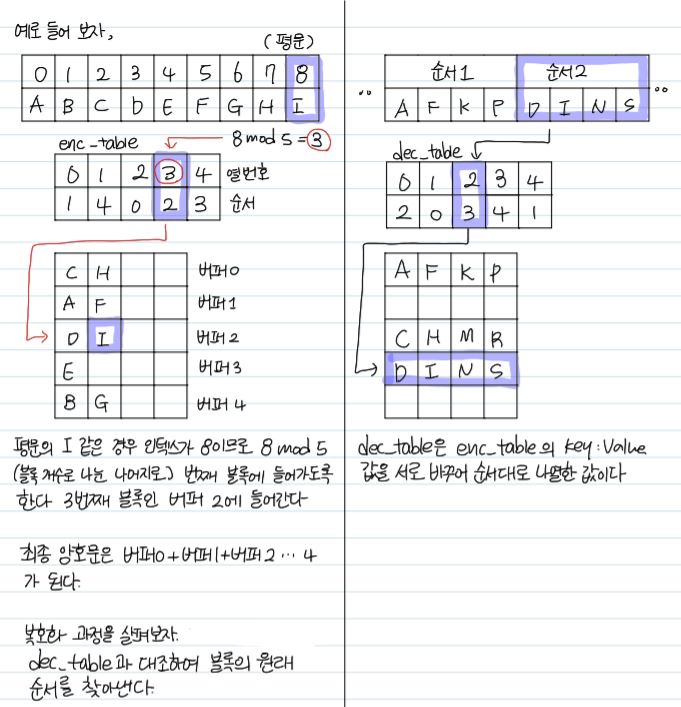 예로 들어 보자,
(평문)
0 1 2 3 4 5 6 7 8
A B C D E F G H I
enc_table
8 mod 5 = 3
0 1 2 3 4 열번호
1 4 0 2 3 순서
C H 버퍼0
A F 버퍼1
D I 버퍼2
E 버퍼3
B G 버퍼4
평문의 I 같은 경우 인덱스가 8이므로 8 mod 5
(블록 개수로 나눈 나머지로) 번째 블록에 들어가도록
한다 3번째 블록인 버퍼 2에 들어간다
최종 암호문은 버퍼0+버퍼1+버퍼2 … 4
가 된다.
복호화 과정을 살펴보자.
dec_table과 대조하여 블록의 원래
순서를 찾아낸다.
순서1 순서2
.. A F K P D I N S ..
dec_table
0 1 2 3 4
2 0 3 4 1
A F K P
C H M R
D I N S
dec_table은 enc_table의 Key:Value
값을 서로 바꾸어 순서대로 나열한 값이다